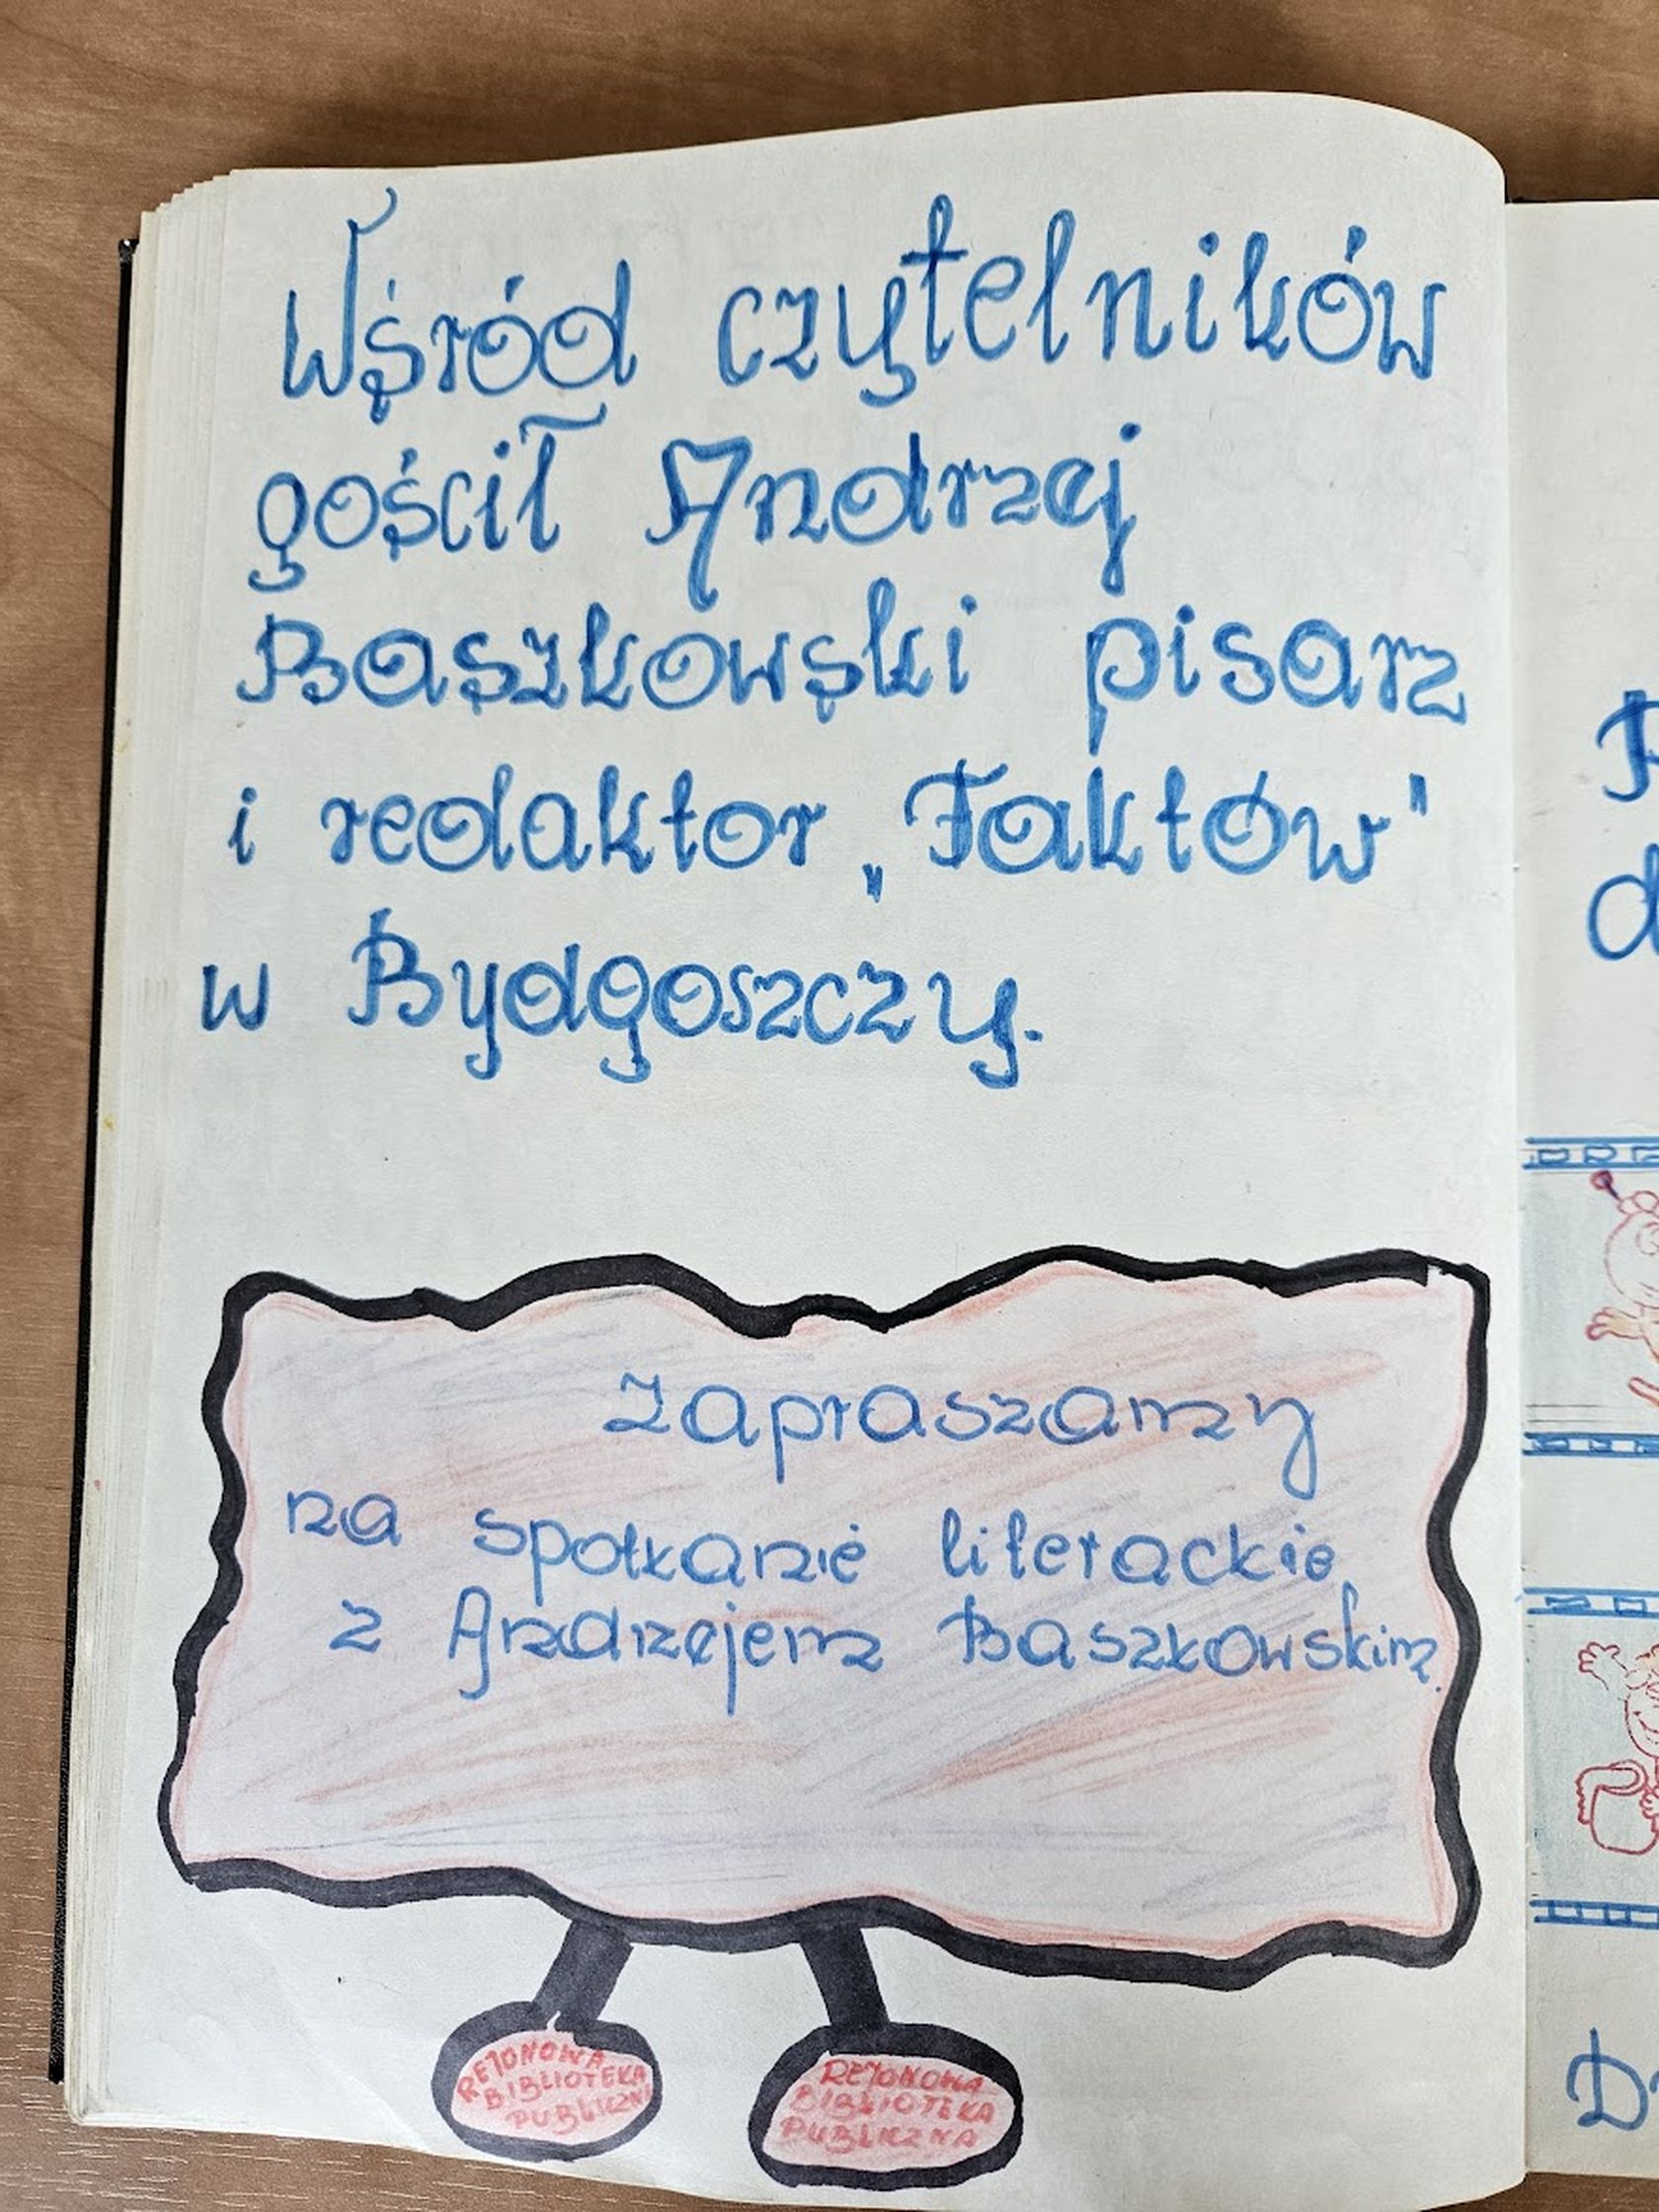 Wśród czytelników
gościł Andrzej
Baszkowski pisarz
i redaktor „Faktów"
w Bydgoszczy.
Zapraszamy
na spotkanie literackie
z Andrzejem Baszkowskim.
REJONOWA
BIBLIOTEKA
PUBLICZNA
REJONOWA
BIBLIOTEKA
PUBLICZNA